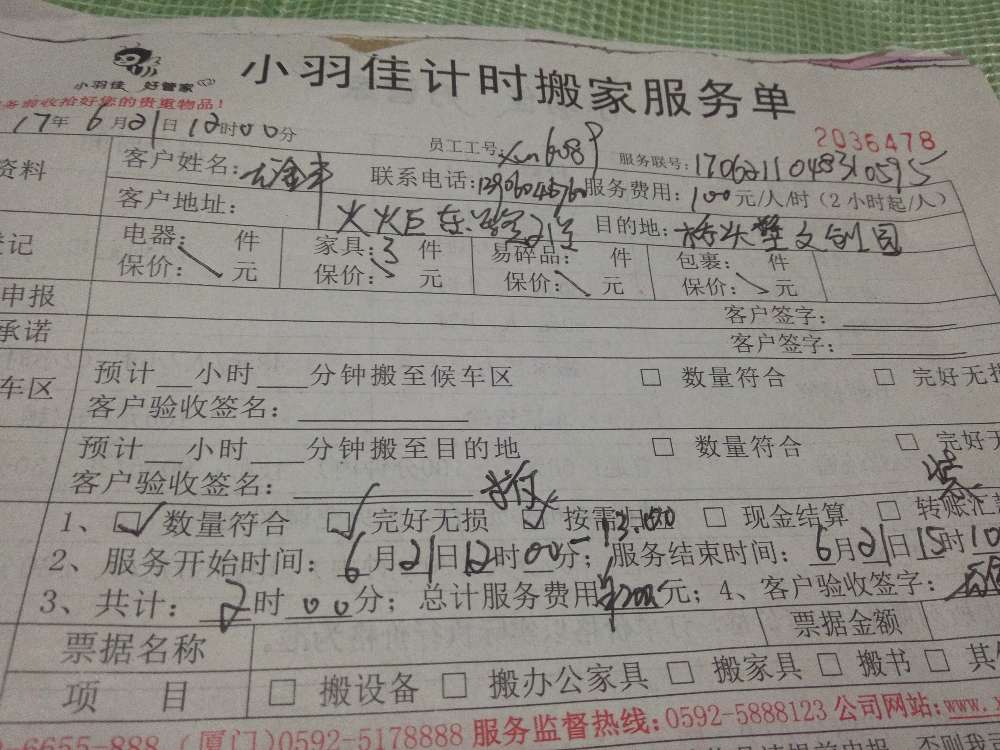 小羽佳计时搬家服务单
小羽佳 好管家
务前收拾好您的贵重物品！
17年6月21日12时00分
员工工号：
2036478
资料
客户姓名：
联系电话：
服务联号：170621104831 0595
服务费用：100元/人/时（2小时起/人）
客户地址：
目的地：
登记
电器： 件 家具：3件 易碎品： 件 包裹： 件
保价： 元 保价： 元 保价： 元 保价： 元
申报
客户签字：
承诺
客户签字：
车区
预计 小时 分钟搬至候车区 □ 数量符合 □ 完好无损
客户验收签名：
预计 小时 分钟搬至目的地 □ 数量符合 □ 完好无
客户验收签名：
1、☑数量符合 ☑完好无损 ☑按需 □ 现金结算 □ 转账汇
2、服务开始时间：6月21日12时00分；服务结束时间：6月21日15时10
3、共计：2时00分；总计服务费用 元；4、客户验收签字：
票据名称 票据金额
项 目 □ 搬设备 □ 搬办公家具 □ 搬家具 □ 搬书 □ 其
6655-888 (厦门)0592-5178888 服务监督热线：0592-5888123 公司网站：www.